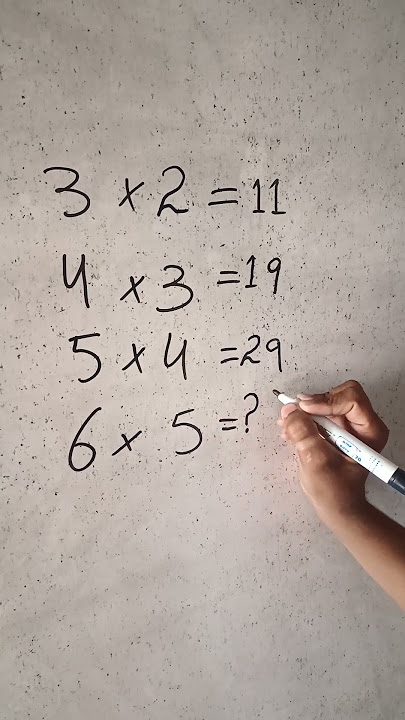 3 × 2 = 11
4 × 3 = 19
5 × 4 = 29
6 × 5 = ?